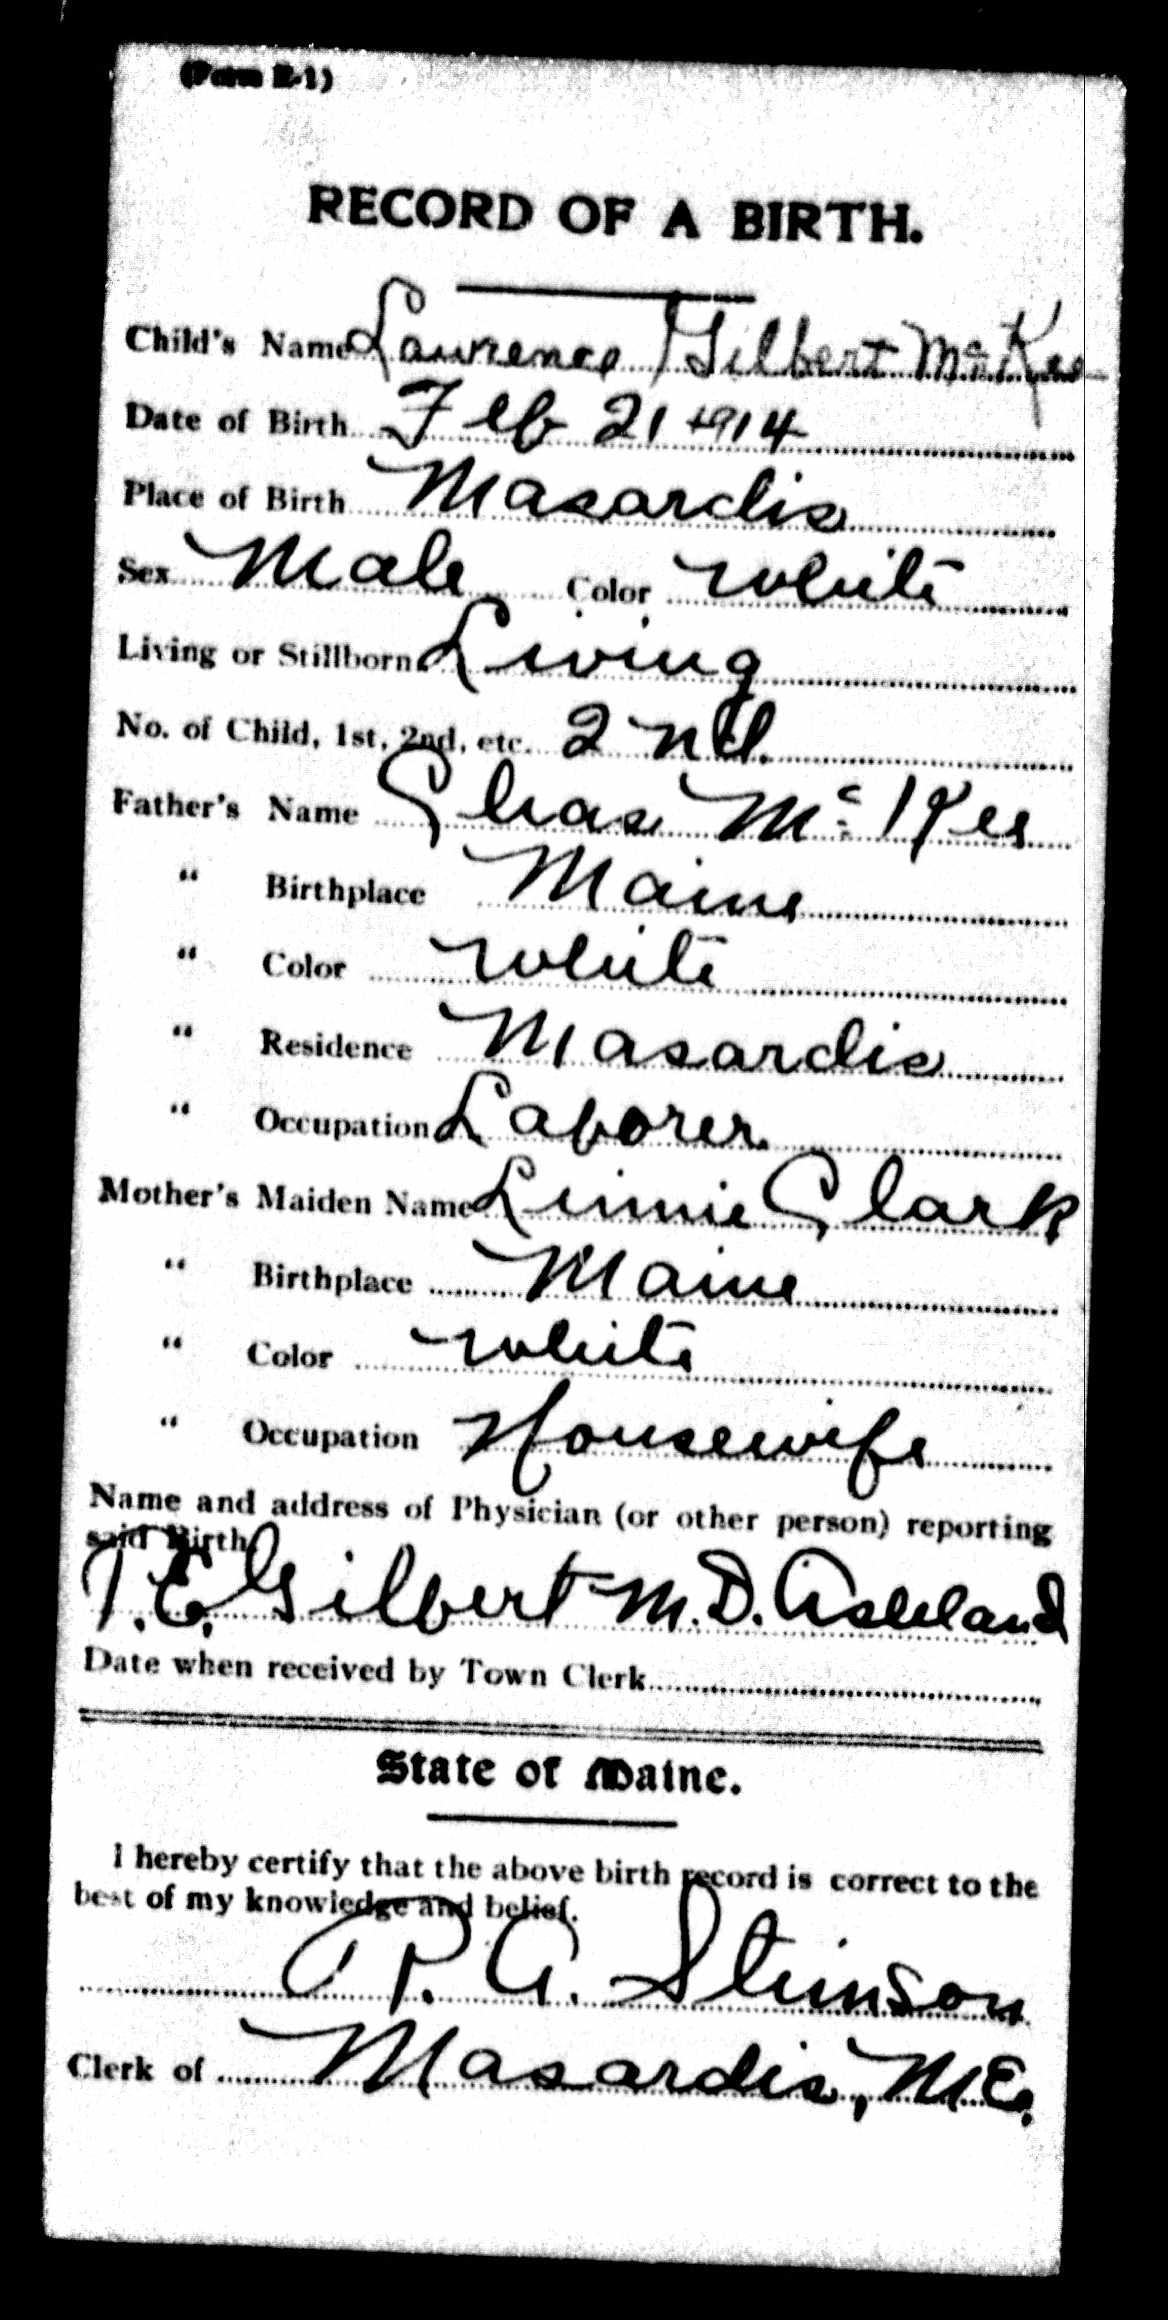 (Form R-1)
RECORD OF A BIRTH.
Child's Name Lawrence Gilbert McKee
Date of Birth Feb 21 1914
Place of Birth Masardis
Sex Male Color White
Living or Stillborn Living
No. of Child, 1st, 2nd, etc. 2nd.
Father's Name Chas Mc Kee
" Birthplace Maine
" Color White
" Residence Masardis
" Occupation Laborer
Mother's Maiden Name Linnie Clark
" Birthplace Maine
" Color White
" Occupation Housewife
Name and address of Physician (or other person) reporting
said Birth
T. E. Gilbert M.D. Ashland
Date when received by Town Clerk
State of Maine.
I hereby certify that the above birth record is correct to the
best of my knowledge and belief.
P. A. Stimson
Clerk of Masardis, ME.